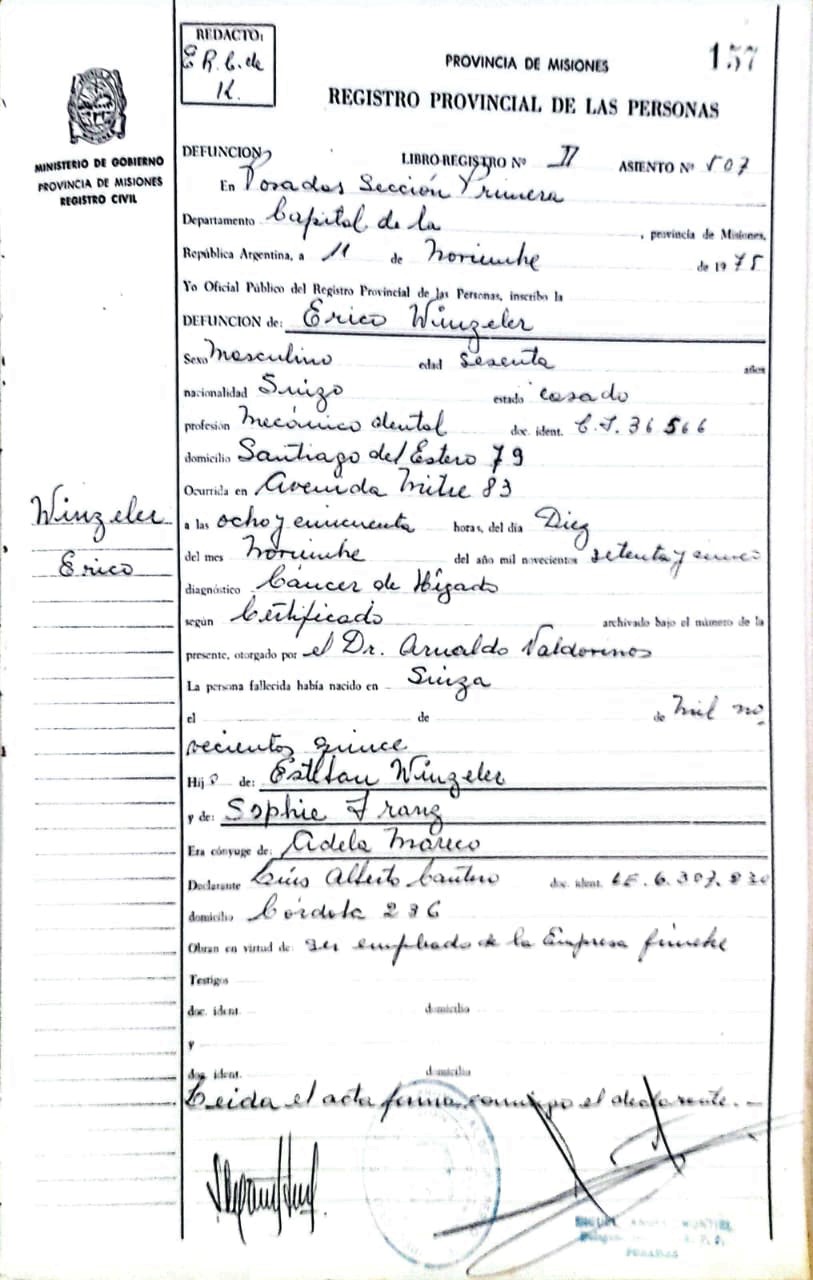 REDACTO:
E R. C. de
K.
PROVINCIA DE MISIONES
157
REGISTRO PROVINCIAL DE LAS PERSONAS
MINISTERIO DE GOBIERNO
PROVINCIA DE MISIONES
REGISTRO CIVIL
DEFUNCION LIBRO-REGISTRO Nº II ASIENTO Nº 507
En Posadas Sección Primera
Departamento Capital de la , provincia de Misiones,
República Argentina, a 11 de Noviembre de 1975
Yo Oficial Público del Registro Provincial de las Personas, inscribo la
DEFUNCION de: Erico Winzeler
Sexo Masculino edad sesenta años
nacionalidad Suizo estado casado
profesión Mecánico dental doc. ident. C.I. 36566
domicilio Santiago del Estero 79
Ocurrida en Avenida Mitre 83
Winzeler
Erico
a las ocho y cincuenta horas, del día Diez
del mes Noviembre del año mil novecientos setenta y cinco
diagnóstico Cáncer de Hígado
según Certificado archivado bajo el número de la
presente, otorgado por el Dr. Arnaldo Valdovinos
La persona fallecida había nacido en Suiza
el de de Mil no
vecientos quince
Hijo de: Esteban Winzeler
y de: Sophie Franz
Era cónyuge de: Adela Mareco
Declarante Luis Alberto Cantero doc. ident. LE. 6.307.830
domicilio Córdoba 236
Obran en virtud de: ser empleado de la Empresa fúnebre
Testigos
doc. ident. domicilio
y
doc. ident. domicilio
Leida el acta firma conmigo el declarante.—
MONTIEL
POSADAS